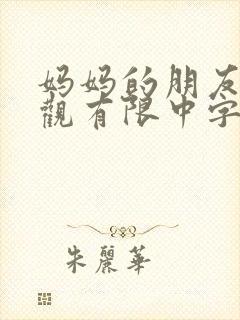 妈妈的朋友
觀有限中字
朱麗華